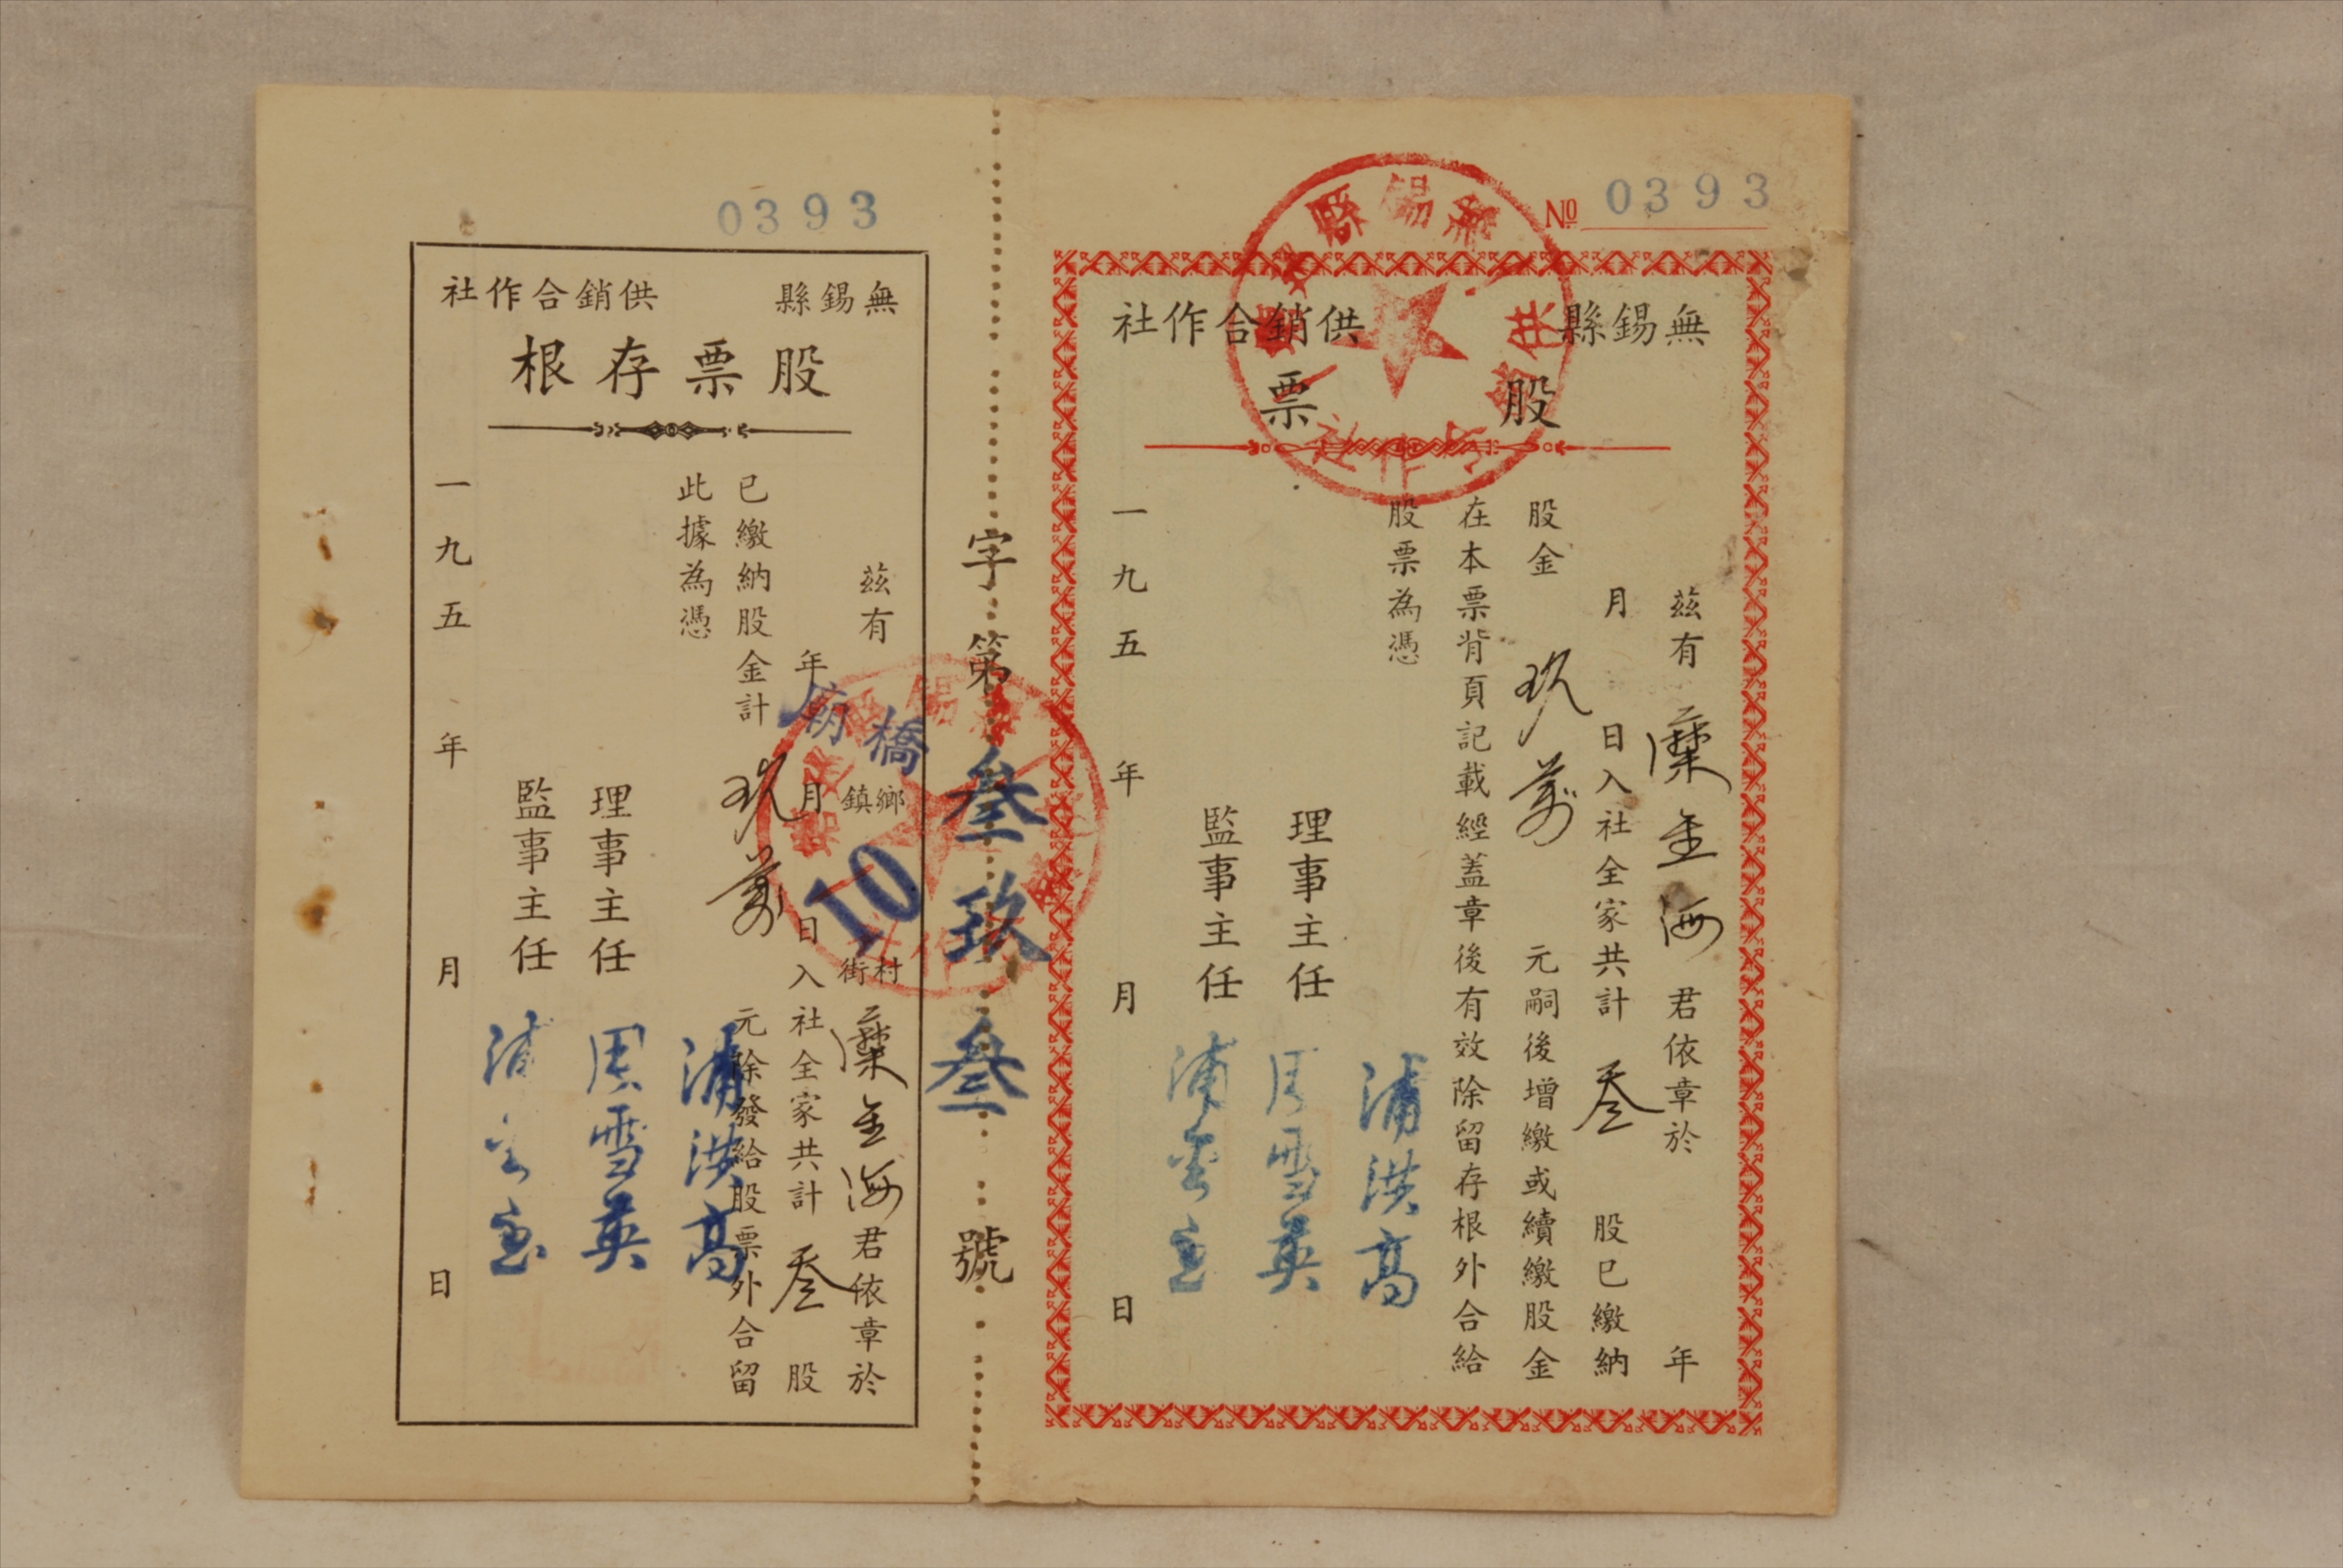 No 0393
無錫縣 供銷合作社
股票
茲有 糜金海 君依章於 年
月 日入社全家共計 叁 股已繳納
股金 玖萬 元嗣後增繳或續繳股金
在本票背頁記載經蓋章後有效除留存根外合給
股票為憑
浦洪高
理事主任 周雪英
監事主任
一九五 年 月 日
字第叁玖叁號
0393
無錫縣 供銷合作社
股票存根
茲有 廟橋 鄉鎮 10 村街 糜金海 君依章於
年 月 日入社全家共計 叁 股
已繳納股金計 玖萬 元除發給股票外合留
此據為憑
浦洪高
理事主任 周雪英
監事主任
一九五 年 月 日